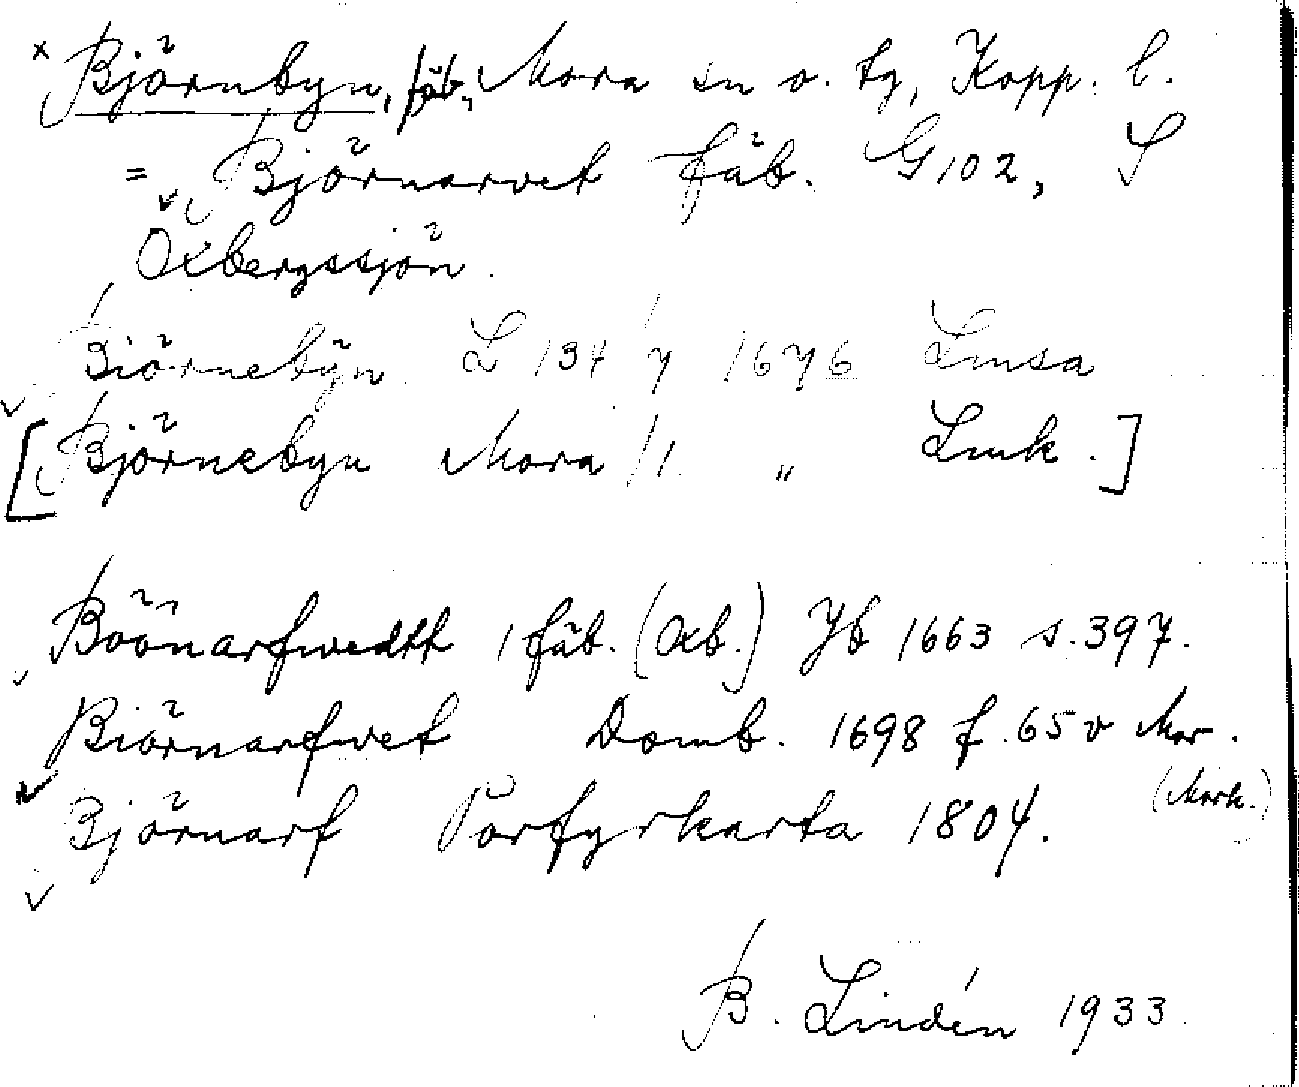 × Björnbyn, fäb., Mora sn o. tg, Kopp. l.
= Björnarvet fäb. G 102, S
Oxbergssjön.
Biörnebÿn L 134/7 1676 Lmsa
[Björnebyn Mora /1. „ Lmk.]
Böönarfwedtt 1 fäb. (Oxb.) Jb 1663 s. 397.
Biörnarfwet Domb. 1698 f. 65 v Mor.
(Mork.)
Björnarf Porfyrkarta 1804.
B. Lindén 1933.